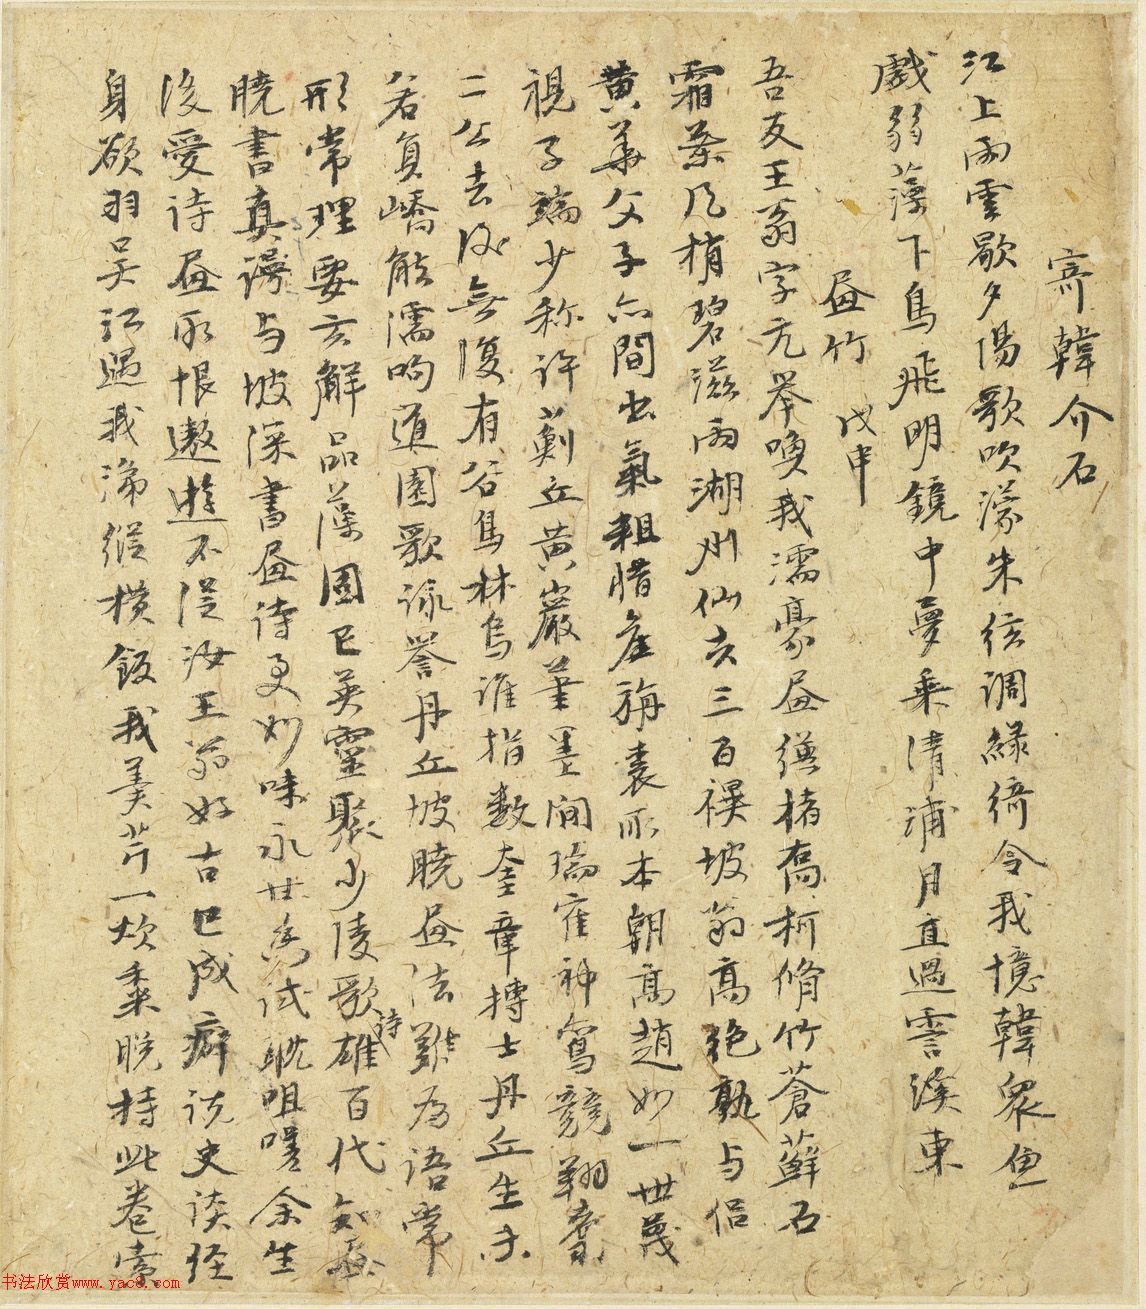 寄韓介石
江上雨雲歇夕陽歌吹濛朱弦調綠綺令我憶韓衆魚
戲弱藻下鳥飛明鏡中夢乘清浦月直過霅溪東
畫竹 戊申
吾友王翁字元舉喚我濡豪畫繒楮喬柯脩竹蒼蘚石
霜葉風梢碧滋雨湖州仙去三百禩坡翁高絕孰與侶
黃華父子亦間出氣粗腊產旃裘所本朝高趙妙一世蔑
視子端少稱許薊丘黃巖筆墨間瑞雀神鸞競翔翥
二公去後無復有谷鳥林烏誰指數奎章博士丹丘生未
若員嶠能濡呴道園歌詠譽丹丘坡曉畫法難為語常
形常理要玄解品藻固已英靈聚少陵歌詩雄百代知畫
曉書真謾與坡深書畫詩更妙味永世為試咀嗼余生
後愛詩畫所恨遨遊不從汝王翁好古已成癖說史談經
身欲羽吳江過我滯縱橫飯我羹芹一炊黍晚持此卷索
书法欣赏www.yac8.com